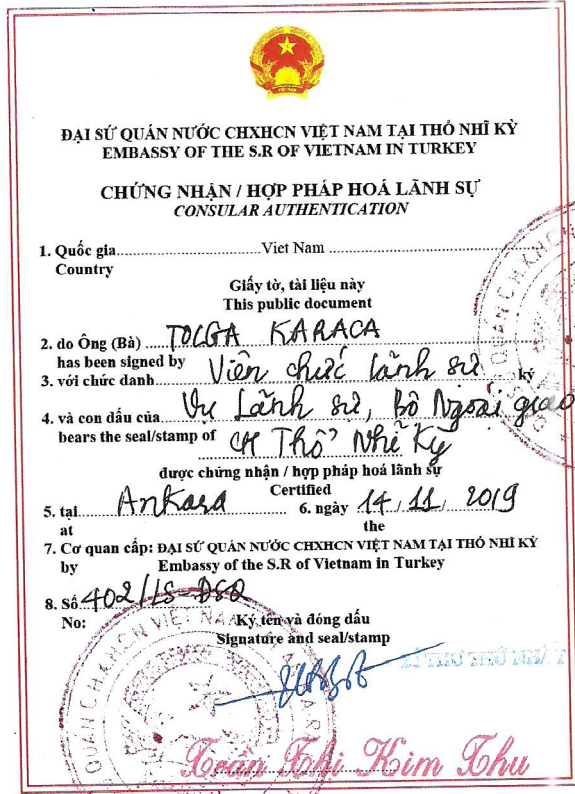 ĐẠI SỨ QUÁN NƯỚC CHXHCN VIỆT NAM TẠI THỔ NHĨ KỲ
EMBASSY OF THE S.R OF VIETNAM IN TURKEY
CHỨNG NHẬN / HỢP PHÁP HOÁ LÃNH SỰ
CONSULAR AUTHENTICATION
1. Quốc gia..........Viet Nam..........
Country
Giấy tờ, tài liệu này
This public document
2. do Ông (Bà) TOLGA KARACA
has been signed by
3. với chức danh Viên chức lãnh sự ký
4. và con dấu của Vụ Lãnh sự, Bộ Ngoại giao
bears the seal/stamp of CH Thổ Nhĩ Kỳ
được chứng nhận / hợp pháp hoá lãnh sự
Certified
5. tại Ankara 6. ngày 14.11.2019
at the
7. Cơ quan cấp: ĐẠI SỨ QUÁN NƯỚC CHXHCN VIỆT NAM TẠI THỔ NHĨ KỲ
by Embassy of the S.R of Vietnam in Turkey
8. Số 402/LS-ĐSQ
No:
Ký tên và đóng dấu
Signature and seal/stamp
Trần Thị Kim Thu